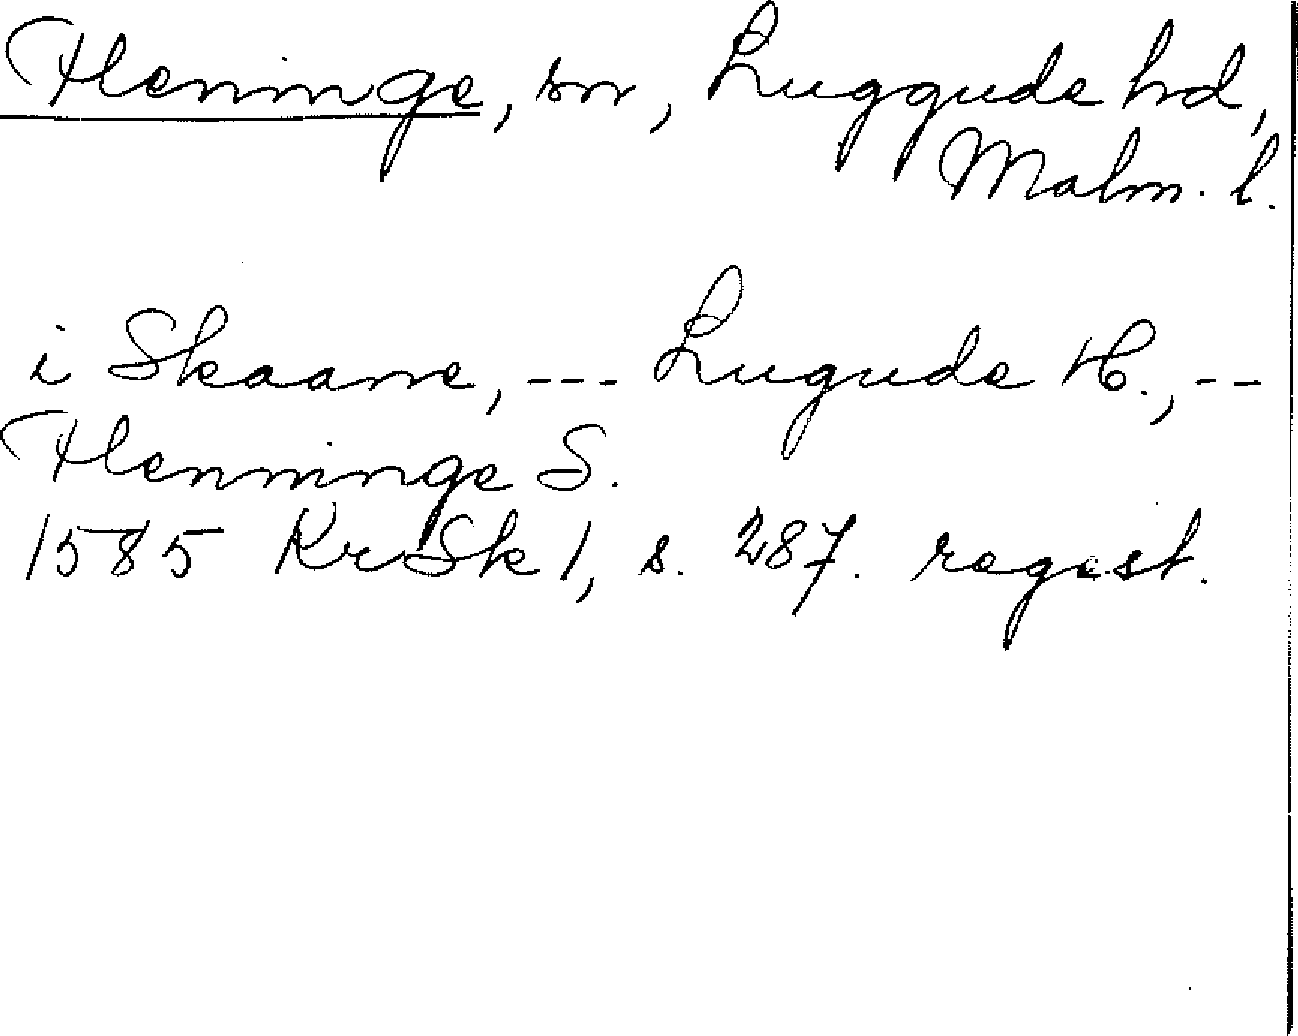 Fleninge, sn, Luggude hd,
Malm. l.
i Skaane, --- Lugude H., --
Flenninge S.
1585 KrSk 1, s. 287. regest.